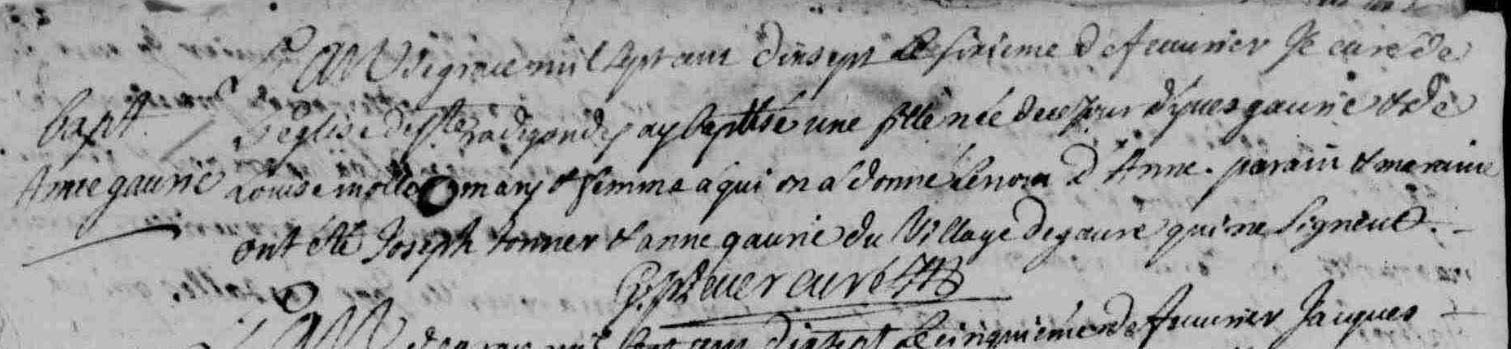 L'an de grace mil sept cent dixsept le sixieme de feuurier Je curé de
bapt. l'eglise de Ste radegonde, ay baptisé une fille née de ce jour d'yues gaurie & de
Anne gaurie Louise molle mary & femme a qui on a donné le nom d'Anne. parain & maraine
ont été Joseph tonner & anne gaurie du Village de gaure qui ne signent.
curé
L'an de grace mil sept cent dixsept le cinquiéme de feuurier Jacques